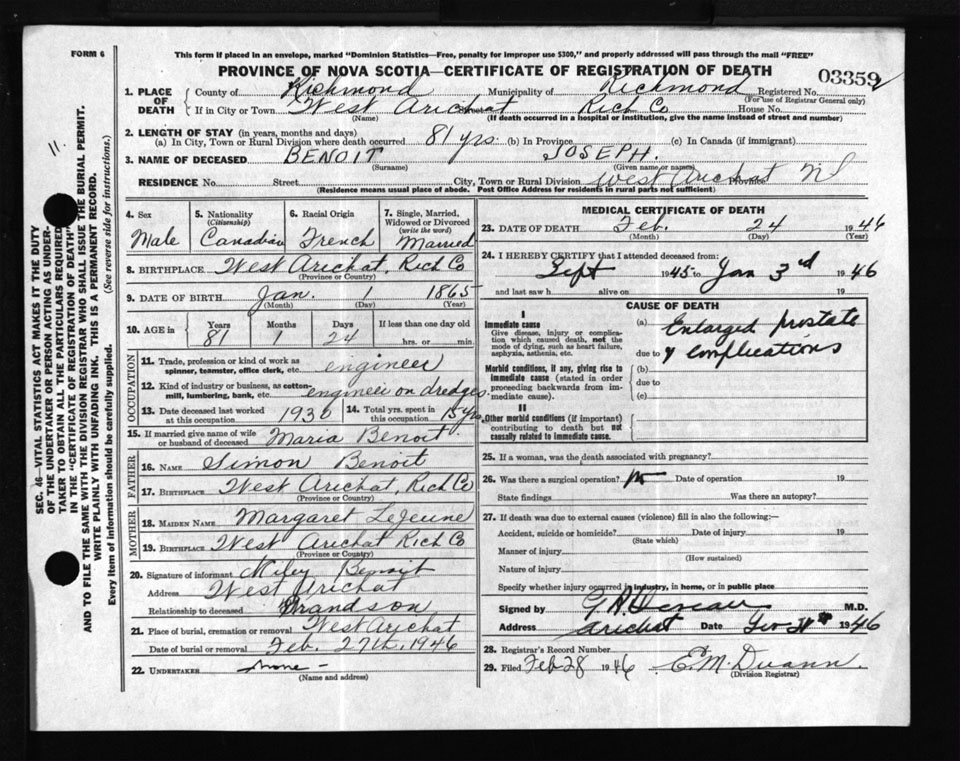 FORM 6
This form if placed in an envelope, marked "Dominion Statistics—Free, penalty for improper use $300," and properly addressed will pass through the mail "FREE"
PROVINCE OF NOVA SCOTIA—CERTIFICATE OF REGISTRATION OF DEATH
03359
1. PLACE OF DEATH
County of Richmond Municipality of Richmond Registered No.
(For use of Registrar General only)
If in City or Town West Arichat Street Rich Co House No.
(Name) (If death occurred in a hospital or institution, give the name instead of street and number)
2. LENGTH OF STAY (in years, months and days)
(a) In City, Town or Rural Division where death occurred 81 yrs. (b) In Province (c) In Canada (if immigrant)
3. NAME OF DECEASED BENOIT JOSEPH.
(Surname) (Given name or names)
RESIDENCE No. Street City, Town or Rural Division West Arichat Province N S
(Residence means usual place of abode. Post Office Address for residents in rural parts not sufficient)
4. Sex
Male
5. Nationality
(Citizenship)
Canadian
6. Racial Origin
French
7. Single, Married, Widowed or Divorced
(write the word)
Married
8. BIRTHPLACE West Arichat, Rich Co
(Province or Country)
9. DATE OF BIRTH Jan. 1 1865
(Month) (Day) (Year)
10. AGE in Years Months Days If less than one day old
81 1 24 hrs. or min.
OCCUPATION
11. Trade, profession or kind of work as spinner, teamster, office clerk, etc. engineer
12. Kind of industry or business, as cotton-mill, lumbering, bank, etc. engineer on dredges.
13. Date deceased last worked at this occupation 1930
14. Total yrs. spent in this occupation 15 yrs.
15. If married give name of wife or husband of deceased Maria Benoit.
FATHER
16. NAME Simon Benoit
17. BIRTHPLACE West Arichat, Rich Co
(Province or Country)
MOTHER
18. MAIDEN NAME Margaret LeJeune
19. BIRTHPLACE West Arichat Rich Co
(Province or Country)
20. Signature of informant Benoit
Address West Arichat
Relationship to deceased Grandson
21. Place of burial, cremation or removal West Arichat
Date of burial or removal Feb. 27th, 1946
22. UNDERTAKER none -
(Name and address)
MEDICAL CERTIFICATE OF DEATH
23. DATE OF DEATH Feb. 24 1946
(Month) (Day) (Year)
24. I HEREBY CERTIFY that I attended deceased from:
Sept 1945 to Jan 3rd 1946
and last saw h alive on 19
CAUSE OF DEATH
I
Immediate cause
Give disease, injury or complication which caused death, not the mode of dying, such as heart failure, asphyxia, asthenia, etc.
(a) Enlarged prostate
due to & complications
Morbid conditions, if any, giving rise to immediate cause (stated in order proceeding backwards from immediate cause).
(b)
due to
(c)
II
Other morbid conditions (if important) contributing to death but not causally related to immediate cause.
25. If a woman, was the death associated with pregnancy?
26. Was there a surgical operation? no Date of operation 19
State findings Was there an autopsy?
27. If death was due to external causes (violence) fill in also the following:—
Accident, suicide or homicide? Date of injury 19
(State which)
Manner of injury
(How sustained)
Nature of injury
Specify whether injury occurred in industry, in home, or in public place
Signed by M.D.
Address Arichat Date 1946
28. Registrar's Record Number
29. Filed Feb 28 1946
(Division Registrar)
SEC. 46—VITAL STATISTICS ACT MAKES IT THE DUTY
OF THE UNDERTAKER OR PERSON ACTING AS UNDER-
TAKER TO OBTAIN ALL THE PARTICULARS REQUIRED
IN THE "CERTIFICATE OF REGISTRATION OF DEATH"
AND TO FILE THE SAME WITH THE DIVISION REGISTRAR WHO SHALL ISSUE THE BURIAL PERMIT.
WRITE PLAINLY WITH UNFADING INK. THIS IS A PERMANENT RECORD.
Every item of information should be carefully supplied. (See reverse side for instructions.)
11.